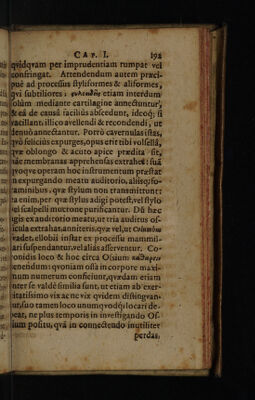 CAP. I. 192
qvidqvam per imprudentiam rumpat vel
confringat. Attendendum autem præci-
puè ad processus styliformes & aliformes,
qvi subtiliores: etiam interdum
solùm mediante cartilagine annectuntur,
& eâ de causâ facilius abscedunt, ideoq; si
vacillant, illico avellendi & recondendi, ut
denuò annectantur. Porrò cavernulas istas,
qvò feliciùs expurges, opus erit tibi volsellâ,
qvæ oblongo & acuto apice prædita sit,
membranas apprehensas extrahet: suâ
qvoqve operam hoc instrumentum præstat
in expurgando meatu auditorio, aliisq; fo-
raminibus, qvæ stylum non transmittunt:
ta enim, per qvæ stylus adigi potest, vel stylo
vel scalpelli mucrone purificantur. Dû hæc
ages ex auditorio meatu, ut tria auditus os-
sicula extrahas, anniteris, qvæ vel, ut Columbus
vadet, ellobii instar ex processu mammil-
lari suspendantur, vel aliàs asserventur. Co-
ronidis loco & hoc circa Ossium
tenendum: qvoniam ossa in corpore maxi-
mum numerum conficiunt, qvædam etiam
inter se valdè similia sunt, ut etiam ab exer-
citatissimo vix ac ne vix qvidem distingvan-
tur, suo tamen loco unumqvodq; locari de-
beat, ne plus temporis in investigando Os-
sium positu, qvâ in connectendo inutiliter
perdas,